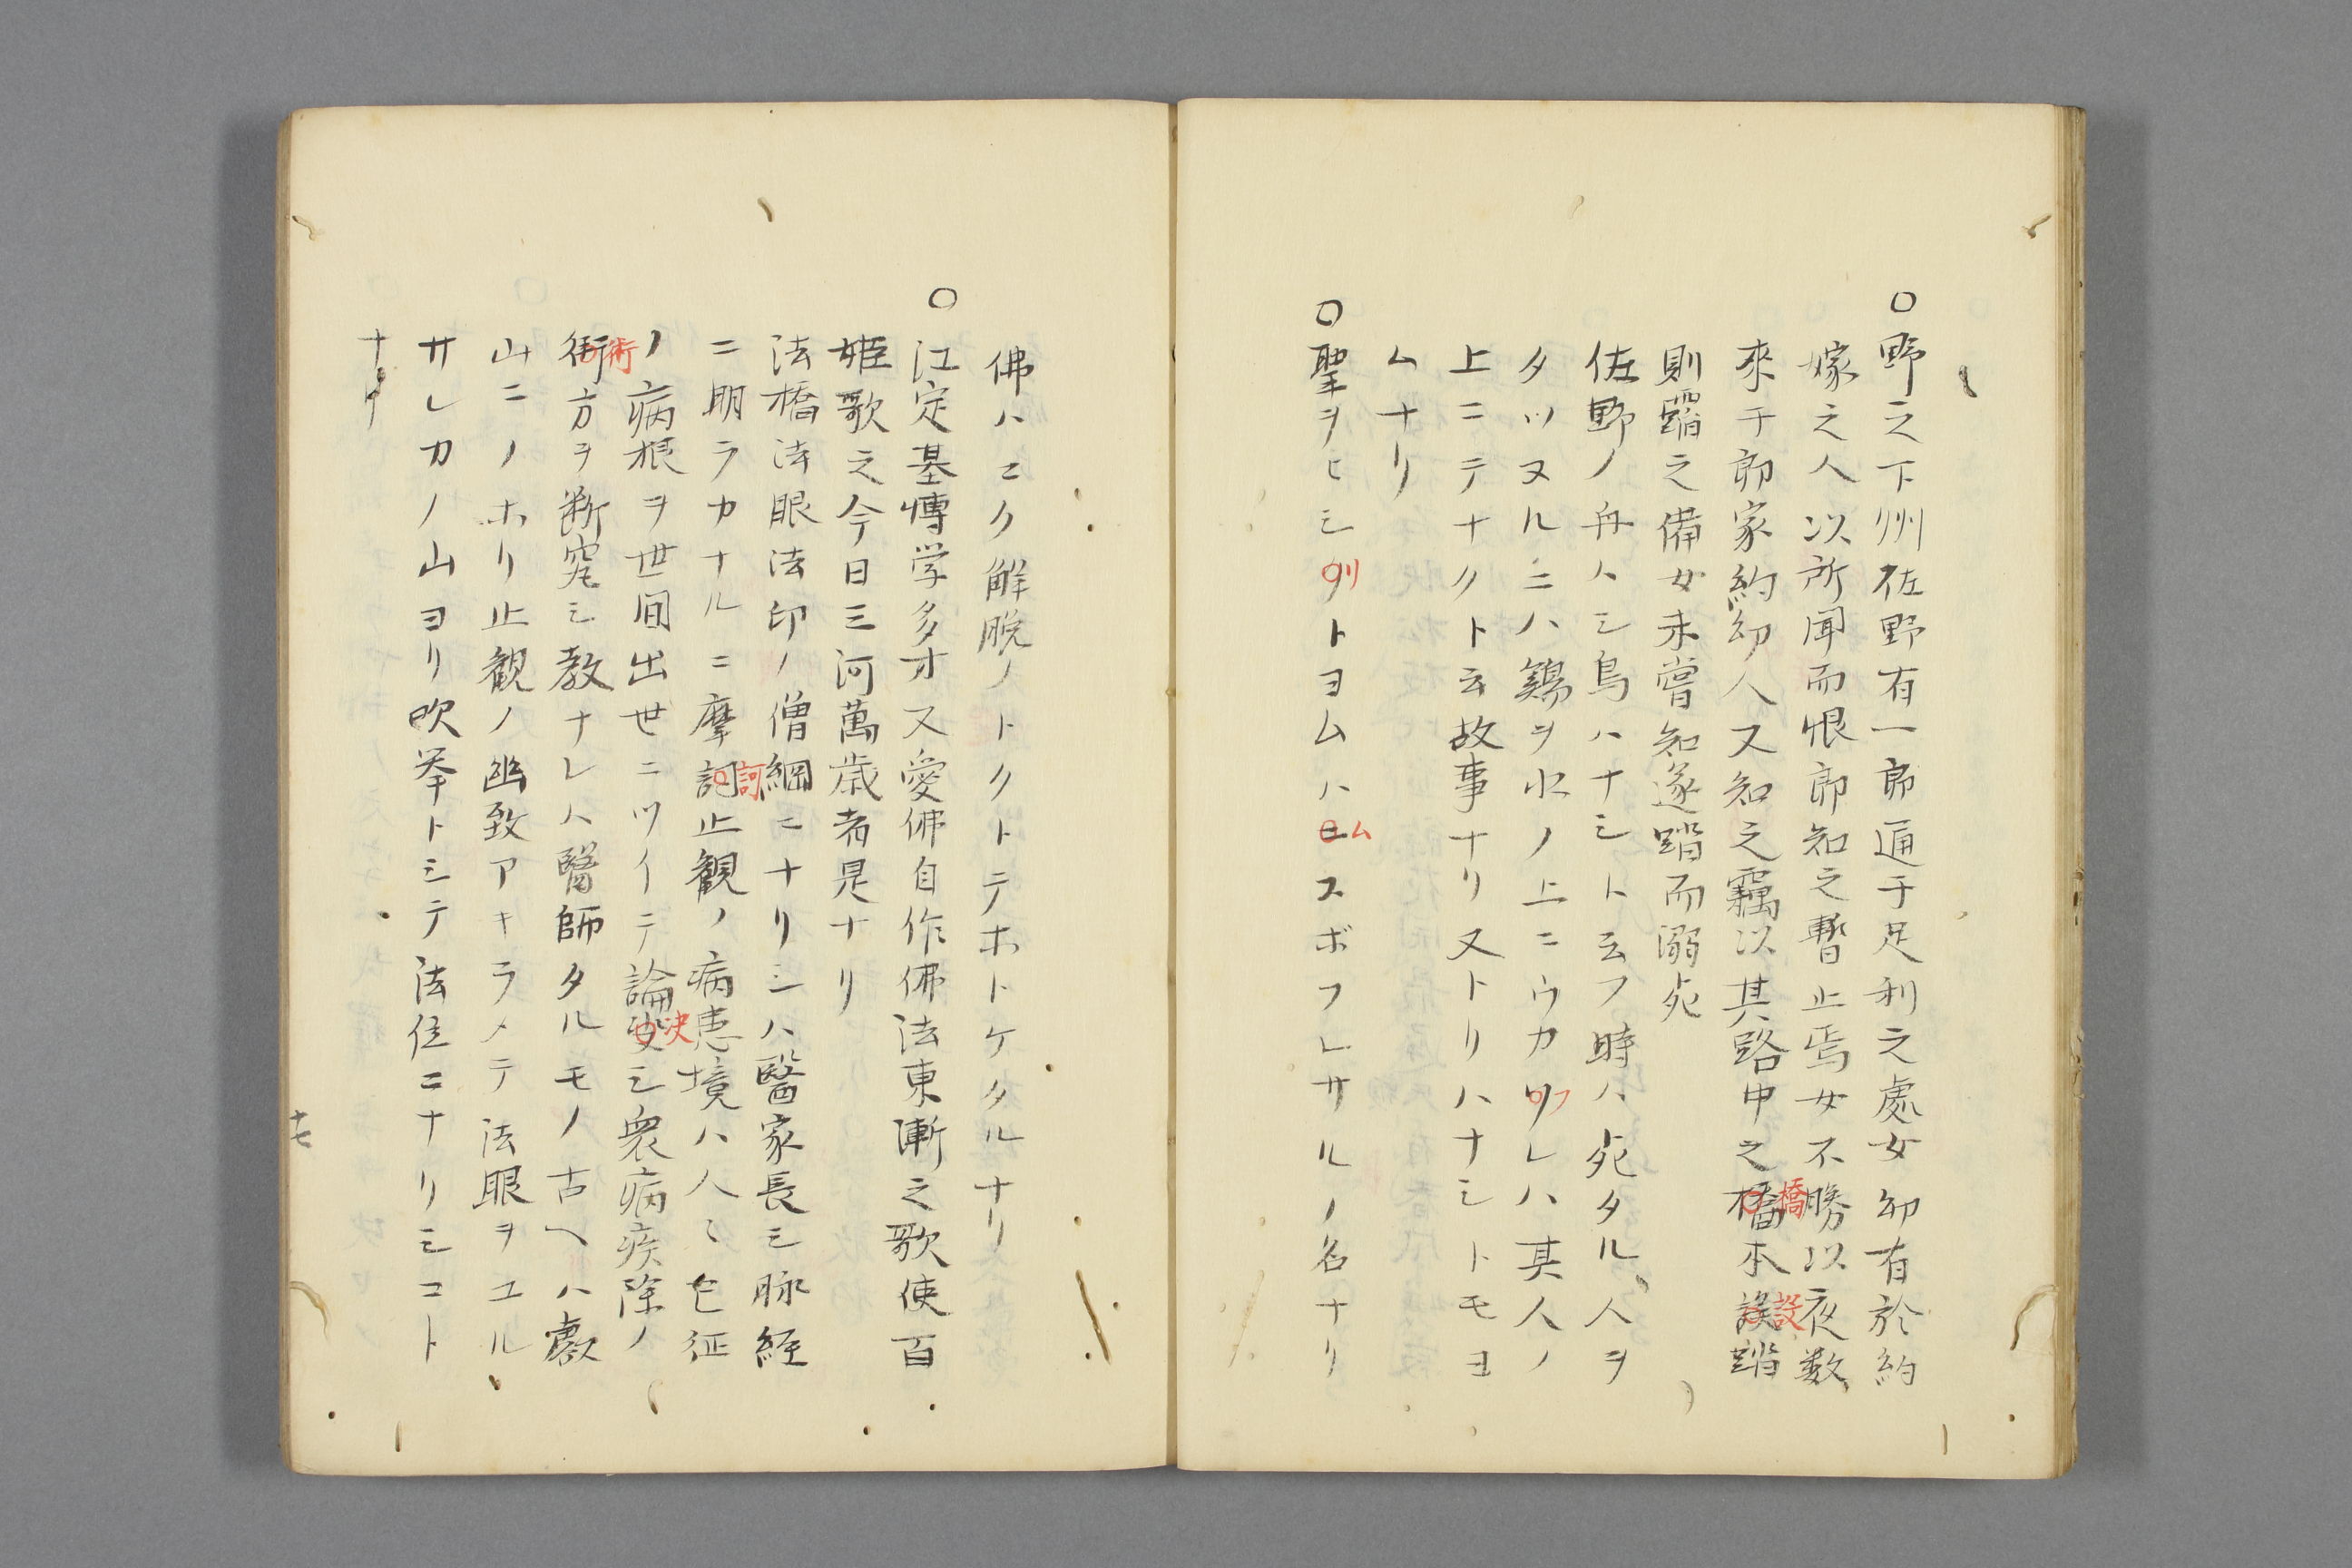 ○野之下州佐野有一郎通于足利之處女女卯有於約
嫁之人以所聞而恨郎知之暫止焉女不勝以夜数
來于郎家約幼人又知之竊以其路中之橋本誤踏
橋
設
則蹈之備女未嘗知遂踏而溺死
佐野ノ舟ハシ鳥ハナシト云フ時ハ死タル人ヲ
タツヌルニハ鷄ヲ水ノ上ニウカクレハ其人ノ
フ
上ニテナクト云故事ナリ又トリハナシトモヨ
ムナリ
○聖ヲヒシクトヨムハヨスボフレサルノ名ナリ
リ
ム
佛ハニク解脱ノトクトテホトケタルナリ
○江定基博学多才又愛佛自作佛法東漸之歌使百
姫歌之今日三河萬歳者是ナリ
法橋法眼法印ノ僧綱ニナリシハ醫家長シ脉経
ニ明ラカナルニ摩詞止観ノ病患境ハ人〻乜征
訶
ノ病根ヲ世間出世ニツイテ論变シ衆病疾除ノ
決
術方ヲ断究シ教ナレハ醫師タルモノ古ヘハ叡
術
山ニノホリ止観ノ幽致アキラメテ法眼ヲユル
サレカノ山ヨリ吹挙トシテ法位ニナリシコト
ナリ
十七